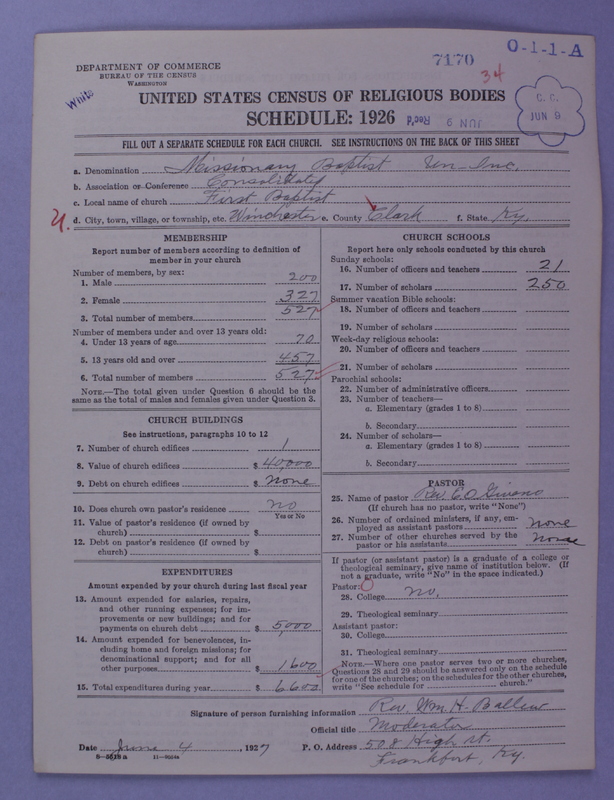 DEPARTMENT OF COMMERCE
BUREAU OF THE CENSUS
WASHINGTON
7170
34
O-1-1-A
White
C. C.
JUN 9
UNITED STATES CENSUS OF RELIGIOUS BODIES
SCHEDULE: 1926
JUN 9 Rec'd
FILL OUT A SEPARATE SCHEDULE FOR EACH CHURCH. SEE INSTRUCTIONS ON THE BACK OF THIS SHEET
a. Denomination Missionary Baptist Un-Inc.
b. Association or Conference Consolidated
c. Local name of church First Baptist
d. City, town, village, or township, etc. Winchester e. County Clark f. State Ky.
MEMBERSHIP
Report number of members according to definition of
member in your church
Number of members, by sex:
1. Male 200
2. Female 327
3. Total number of members 527
Number of members under and over 13 years old:
4. Under 13 years of age 70
5. 13 years old and over 457
6. Total number of members 527
NOTE.—The total given under Question 6 should be the
same as the total of males and females given under Question 3.
CHURCH BUILDINGS
See instructions, paragraphs 10 to 12
7. Number of church edifices 1
8. Value of church edifices $ 40,000
9. Debt on church edifices $ none
10. Does church own pastor's residence no
Yes or No
11. Value of pastor's residence (if owned by
church) $
12. Debt on pastor's residence (if owned by
church) $
EXPENDITURES
Amount expended by your church during last fiscal year
13. Amount expended for salaries, repairs,
and other running expenses; for im-
provements or new buildings; and for
payments on church debt $ 5000
14. Amount expended for benevolences, in-
cluding home and foreign missions; for
denominational support; and for all
other purposes $ 1600
15. Total expenditures during year $ 6600
CHURCH SCHOOLS
Report here only schools conducted by this church
Sunday schools:
16. Number of officers and teachers 21
17. Number of scholars 250
Summer vacation Bible schools:
18. Number of officers and teachers
19. Number of scholars
Week-day religious schools:
20. Number of officers and teachers
21. Number of scholars
Parochial schools:
22. Number of administrative officers
23. Number of teachers—
a. Elementary (grades 1 to 8)
b. Secondary
24. Number of scholars—
a. Elementary (grades 1 to 8)
b. Secondary
PASTOR
25. Name of pastor Rev. C O
(If church has no pastor, write "None")
26. Number of ordained ministers, if any, em-
ployed as assistant pastors none
27. Number of other churches served by the
pastor or his assistants none
If pastor (or assistant pastor) is a graduate of a college or
theological seminary, give name of institution below. (If
not a graduate, write "No" in the space indicated.)
Pastor: O
28. College no.
29. Theological seminary
Assistant pastor:
30. College
31. Theological seminary
NOTE.—Where one pastor serves two or more churches,
Questions 28 and 29 should be answered only on the schedule
for one of the churches; on the schedules for the other churches,
write "See schedule for church."
Signature of person furnishing information Rev. Wm. H. Ballew
Official title Moderator
Date June 4, 1927 P. O. Address 508 High St.
Frankfort, Ky.